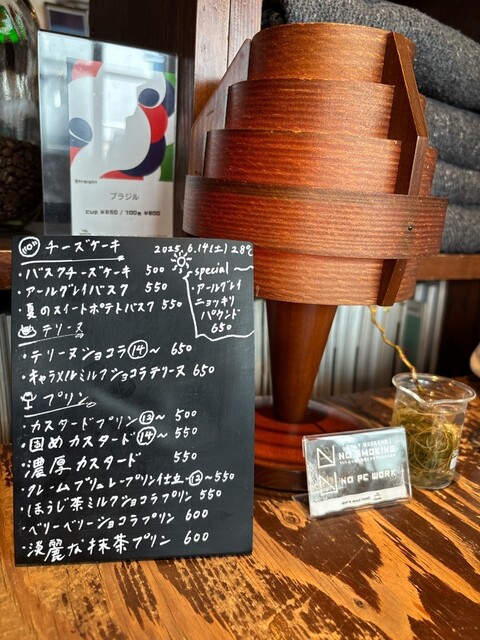 Straight
ブラジル
CUP ¥650 / 100g ¥800
NOW チーズケーキ
2025. 6.14(土) 28℃
・バスクチーズケーキ 500
・アールグレイバスク 550
・夏のスイートポテトバスク 550
special
・アールグレイ
ニョッキリ
パウンド
650
テリーヌ
・テリーヌショコラ⑭〜 650
・キャラメルミルクショコラテリーヌ 650
プリン
・カスタードプリン⑫〜 500
・固めカスタード⑭〜 550
・濃厚カスタード 550
・クレームブリュレープリン仕立⑫〜550
・ほうじ茶ミルクショコラプリン 550
・ベリーベリーショコラプリン 600
・淡麗な抹茶プリン 600
NO SMOKING
NO PC WORK